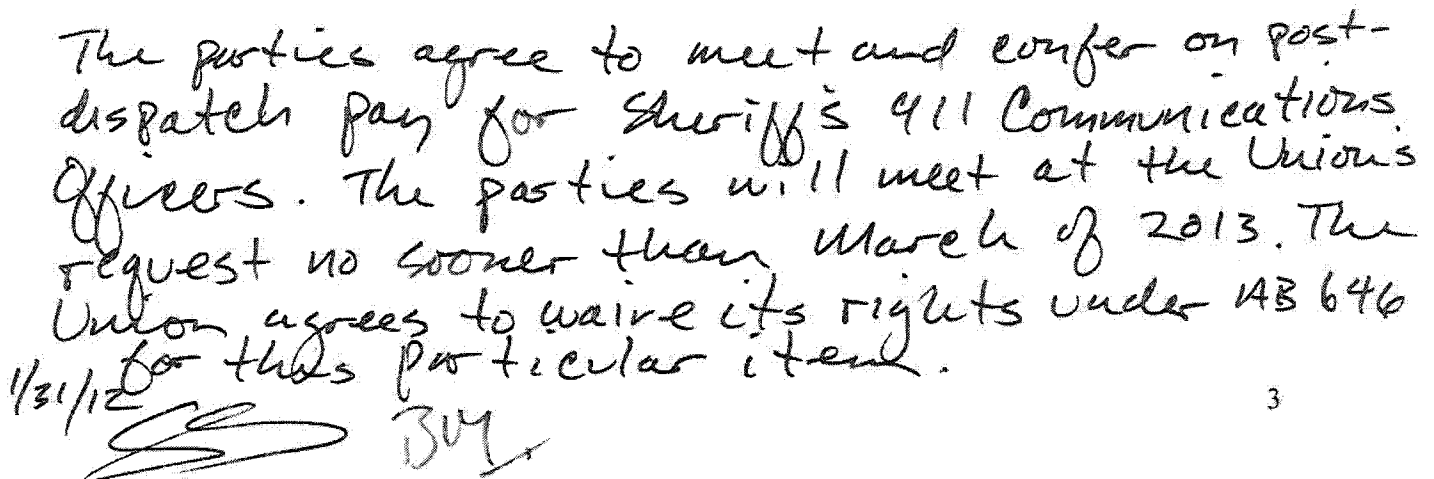 The parties agree to meet and confer on post-
dispatch pay for Sheriff's 911 Communications
Officers. The parties will meet at the Union's
request no sooner than March of 2013. The
Union agrees to waive its rights under AB 646
for this particular item.
1/31/12
3